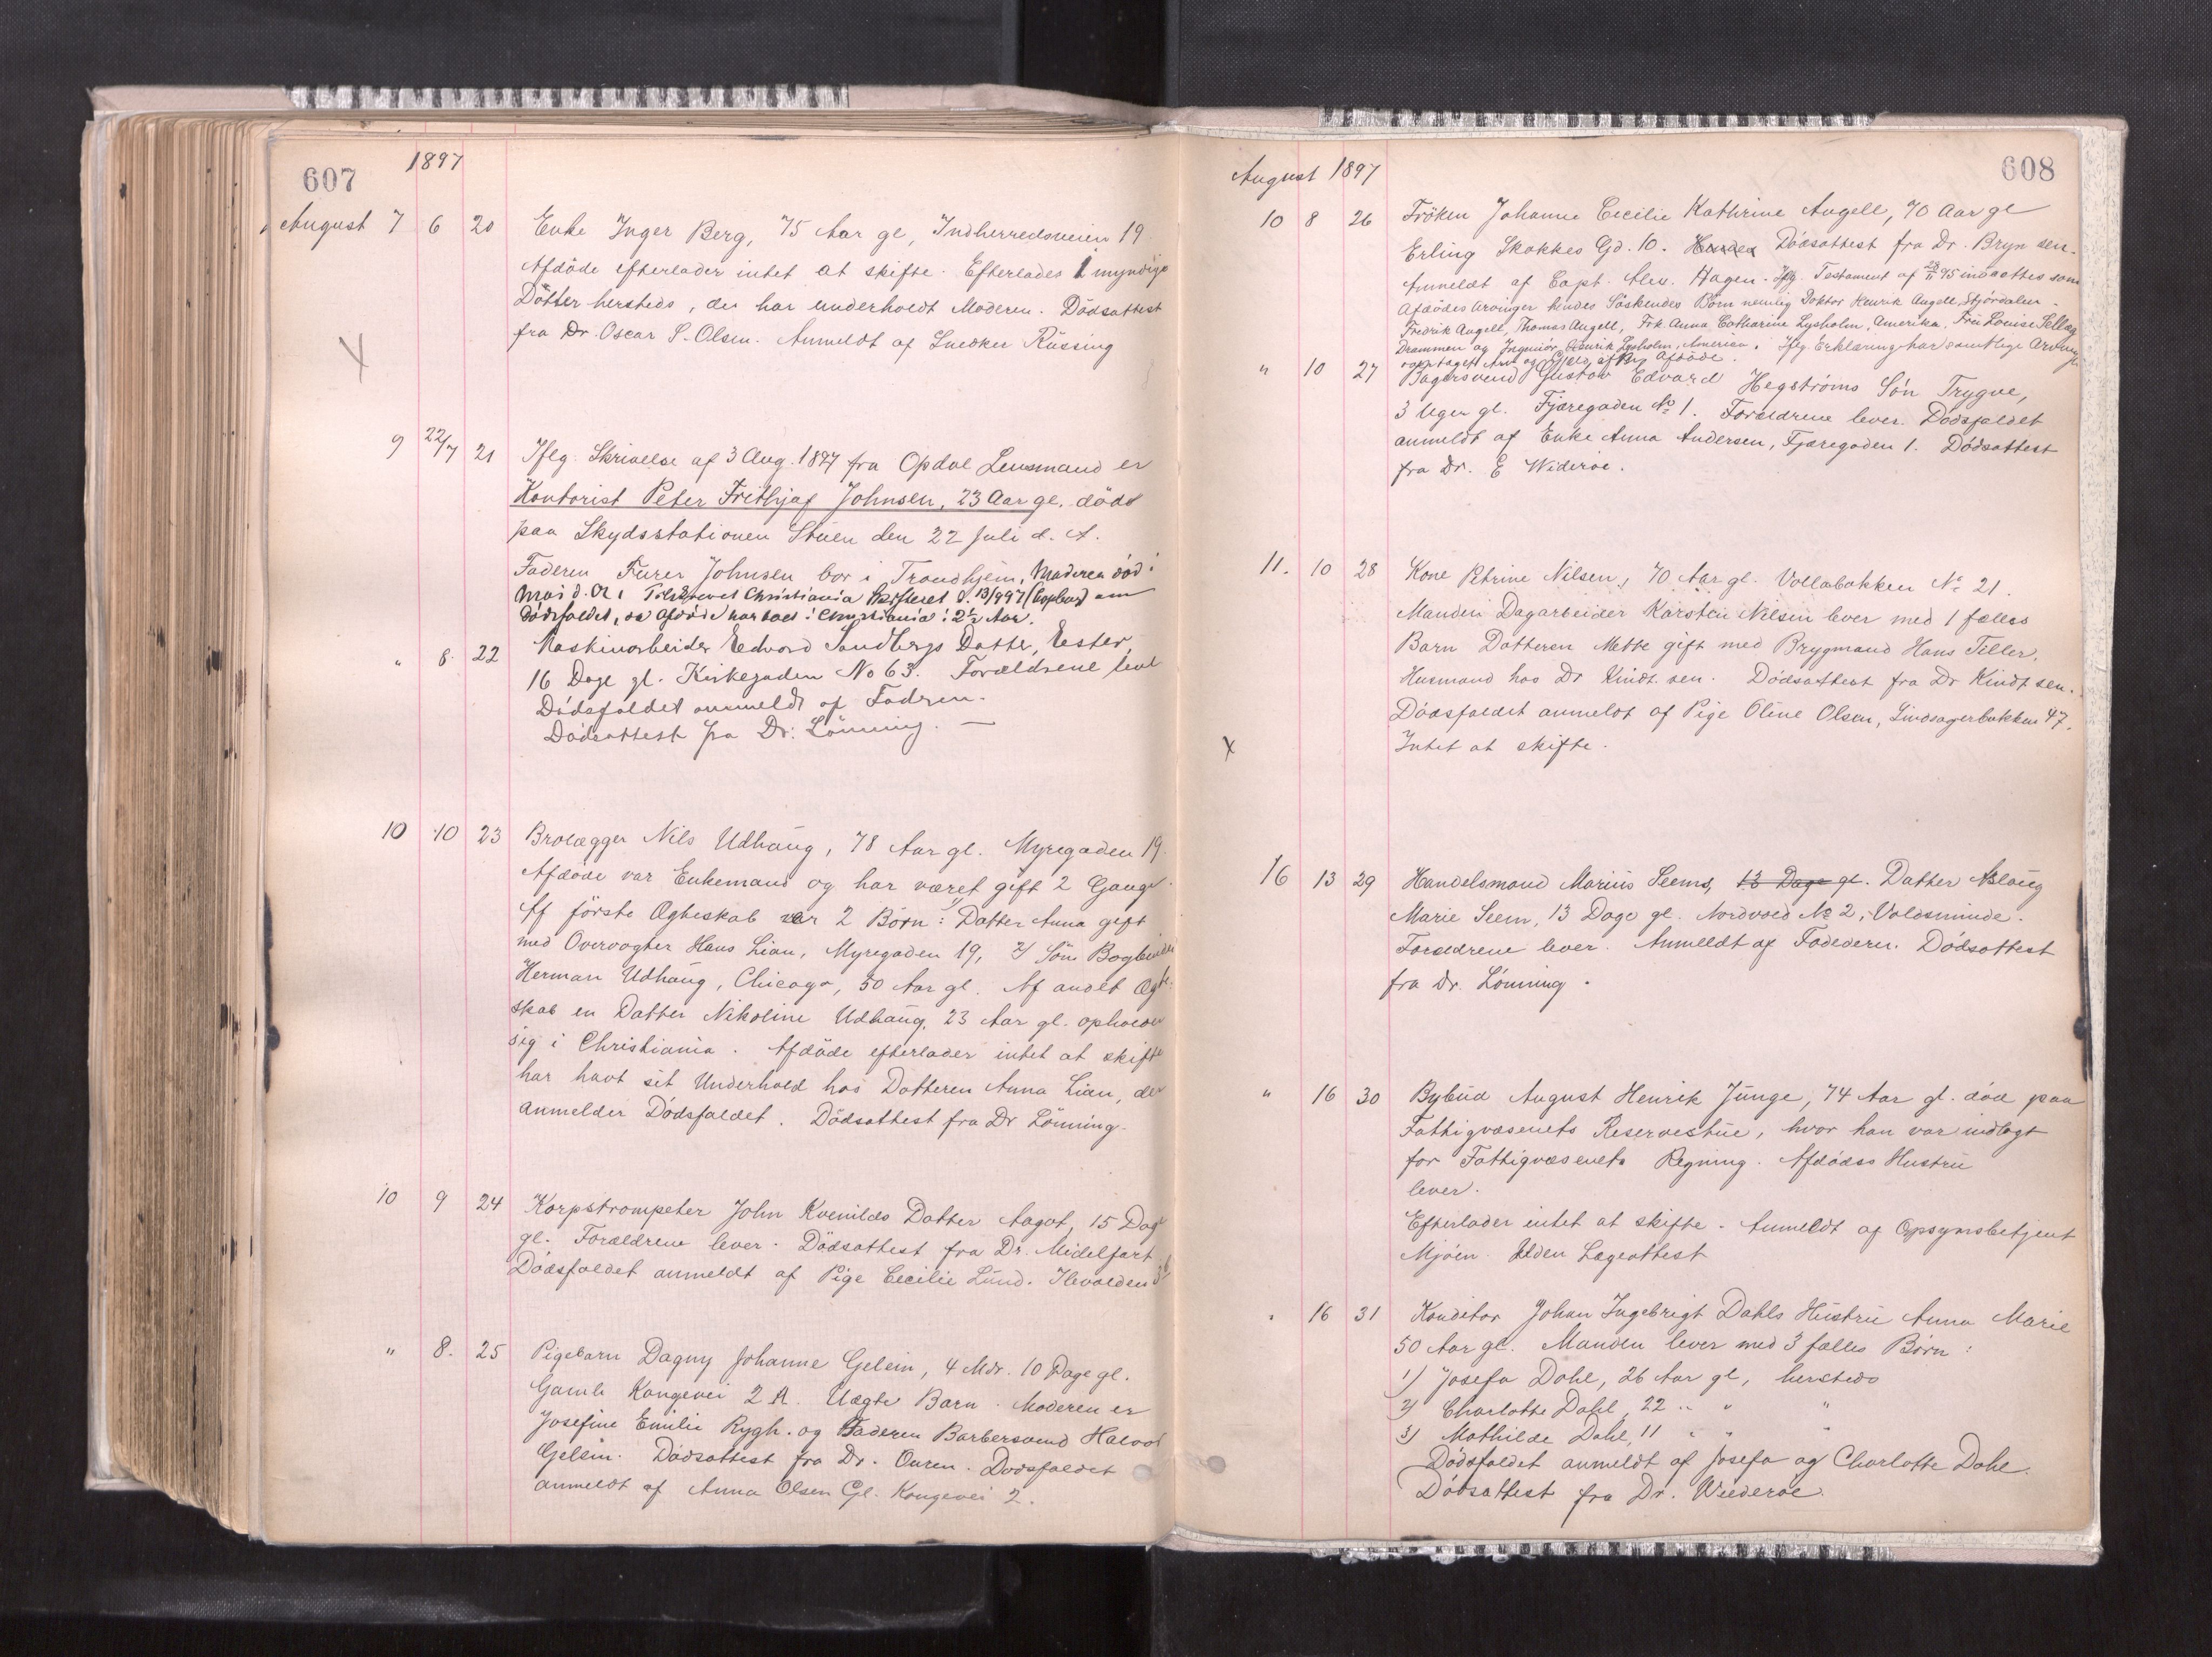 607
1897
August 7 6 20 Enke Inger Berg, 75 Aar gl, Indherredsveien 19
Afdöde efterlader intet at skifte. Efterlades 1 myndige
Dötter hersteds, der har underholdt Moderen. Dödsattest
fra Dr. Oscar S. Olsen. Anmeldt af Snedker Rüssing
X
9 22/7 21 Iflg. Skrivelse af 3 Aug. 1897 fra Opdal Lensmand er
Kontorist Peter Frithjof Johnsen, 23 Aar gl. död
paa Skydsstationen Stuen den 22 Juli d. A.
Faderen Furer Johnsen bor i Trondhjem, Moderen död i
Mai d. A. Tilskrevet Christiania Skifteret d. 13/8 97 (Copibog) om
Dödsfaldet, da Afdöde har boet i Christiania i 2½ Aar.
" 8. 22 Maskinarbeider Edvard Sandbergs Datter, Ester,
16 Dage gl. Kirkegaden No 63. Forældrene lever
Dödsfaldet anmeldt af Fadren.
Dödsattest fra Dr: Lönning. —
10 10 23 Brolægger Nils Udhaug, 78 Aar gl. Myregaden 19.
Afdöde var Enkemand og har været gift 2 Gange.
Af förste Ægteskab var 2 Börn: 1/ Datter Anna gift
med Overvogter Hans Lian, Myregaden 19, 2/ Sön Bogbinder
Herman Udhaug, Chicago, 50 Aar gl. Af andet Ægte-
skab en Datter Nikoline Udhaug, 23 Aar gl. opholder
sig i Christiania. Afdöde efterlader intet at skifte
har havt sit Underhold hos Datteren Anna Lian, der
anmelder Dödsfaldet. Dödsattest fra Dr Lönning.
10 9 24 Korpstrompeter John Kvenilds Datter Aagot, 15 Dage
gl. Forældrene lever. Dödsattest fra Dr. Midelfart.
Dödsfaldet anmeldt af Pige Cecilie Lund. Ilevolden
" 8. 25 Pigebarn Dagny Johanne Gelein, 4 Mdr. 10 Dage gl.
Gamle Kongevei 2 A. Uægte Barn. Moderen er
Josefine Emilie Rygh. og Faderen Barbersvend Halvor
Gelein. Dödsattest fra Dr. Ouren. Dödsfaldet
anmeldt af Anna Olsen Gl. Kongevei 2.
608
August 1897
10 8 26 Fröken Johanne Cecilie Kathrine Angell, 70 Aar gl
Erling Skakkes Gd. 10. Dödsattest fra Dr. Bryn sen.
Anmeldt af Capt. Alex. Hagen. Iflg. Testament af 28/11 95 indsættes som
Afdödes Arvinger hendes Söskendes Börn nemlig Doktor Henrik Angell, Stjördalen.
Fredrik Angell, Thomas Angell, Frk. Anna Catharine Lysholm, Amerika. Fru Louise
Drammen og Ingeniör Henrik Lysholm, America. Iflg. Erklæring har samtlige Arvinger
vedtaget Arv og Gjæld af Afdöde.
" 10 27 Bagersvend Gustav Edvard Hegströms Sön Trygve,
3 Uger gl. Fjæregaden No 1. Forældrene lever. Dödsfaldet
anmeldt af Enke Anna Andersen, Fjæregaden 1. Dödsattest
fra Dr. E Wideröe.
11. 10 28 Kone Petrine Nilsen, 70 Aar gl. Vollabakken No 21.
Manden Dagarbeider Karsten Nilsen lever med 1 fælles
Barn Datteren Mette gift med Brygmand Hans Tiller.
Husmand hos Dr Kindt sen. Dödsattest fra Dr Kindt sen.
Dödsfaldet anmeldt af Pige Oline Olsen, Sindsagerbakken 47.
X
Intet at skifte.
16 13 29 Handelsmand Marius Seems, 13 Dage gl. Datter Aslaug
Marie Seem, 13 Dage gl. Nordvoed No 2, Voldsminde.
Forældrene lever. Anmeldt af Fadederen. Dödsattest
fra Dr. Lönning.
" 16 30 Bybud August Henrik Junge, 74 Aar gl. död paa
Fattigvæsenets Reservestue, hvor han var indlagt
for Fattigvæsenets Regning. Afdödes Hustru
lever.
Efterlader intet at skifte. Anmeldt af Opsynsbetjent
Mjöen. Uden Lægeattest
" 16 31 Konditor Johan Ingebrigt Dahls Hustru Anna Marie
50 Aar gl. Manden lever med 3 fælles Börn:
1) Josefa Dahl, 26 Aar gl, hersteds
2) Charlotte Dahl, 22 " " "
3) Mathilde Dahl, 11 " " "
Dödsfaldet anmeldt af Josefa og Charlotte Dahl.
Dödsattest fra Dr. Wideröe.